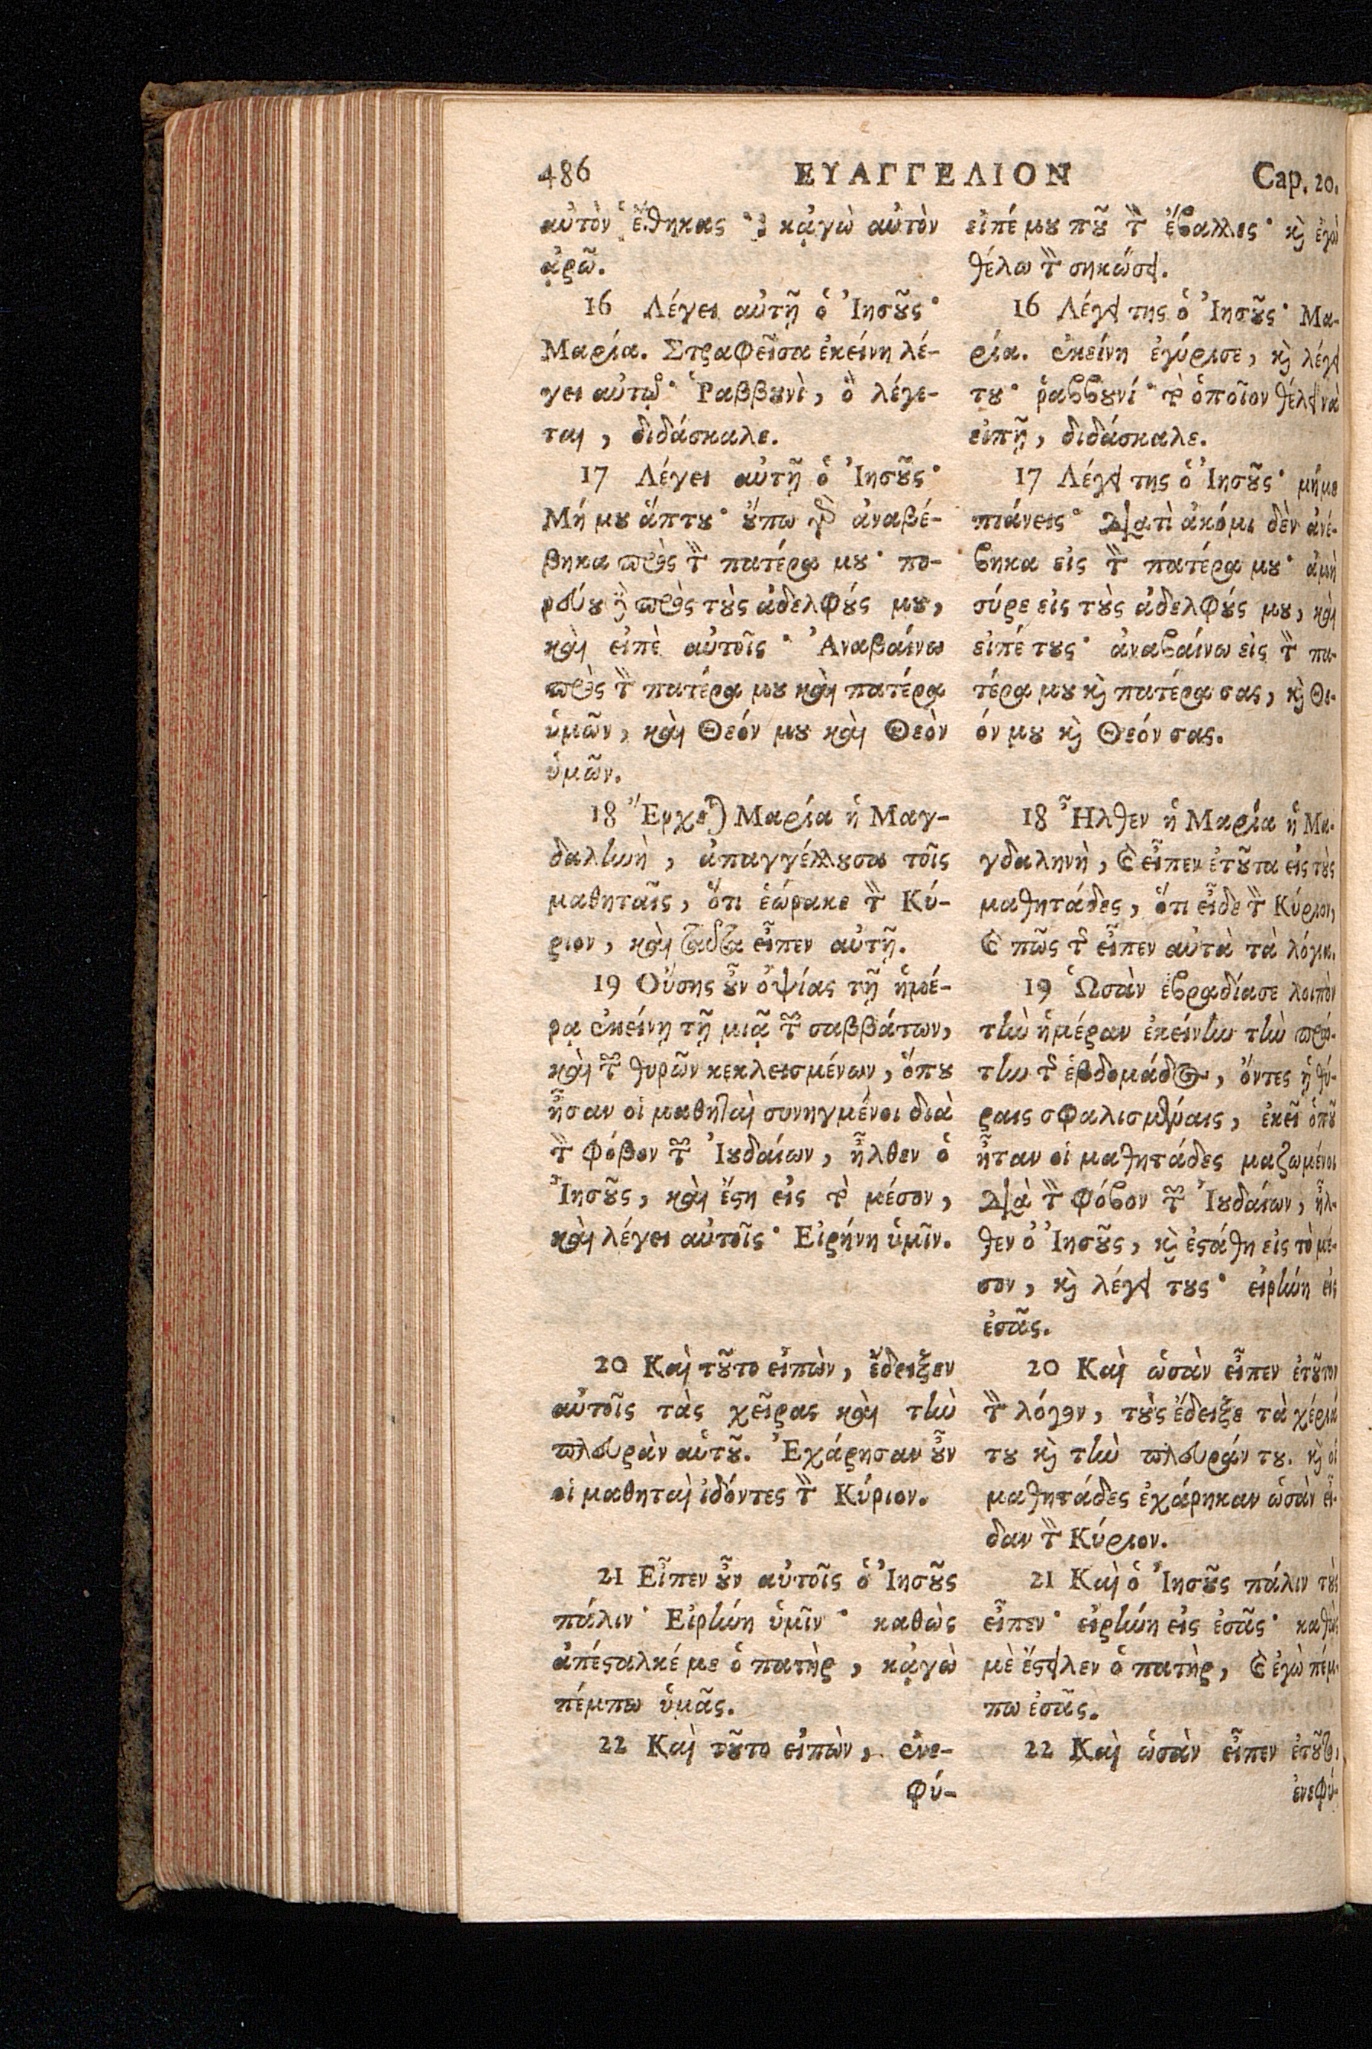 486 ΕΥΑΓΓΕΛΙΟΝ Cap. 20.
αὐτὸν ἔθηκας· κᾀγὼ αὐτὸν
ἀρῶ.
16 Λέγει αὐτῇ ὁ Ἰησοῦς·
Μαρία. Στραφεῖσα ἐκείνη λέ-
γει αὐτῷ· Ῥαββουνὶ, ὃ λέγε-
ται, διδάσκαλε.
17 Λέγει αὐτῇ ὁ Ἰησοῦς·
Μή μου ἅπτου· οὔπω γὰρ ἀναβέ-
βηκα πρὸς τὸν πατέρα μου· πο-
ρεύου δὲ πρὸς τοὺς ἀδελφούς μου,
καὶ εἰπὲ αὐτοῖς· Ἀναβαίνω
πρὸς τὸν πατέρα μου καὶ πατέρα
ὑμῶν, καὶ Θεόν μου καὶ Θεὸν
ὑμῶν.
18 Ἔρχεται Μαρία ἡ Μαγ-
δαληνὴ, ἀπαγγέλλουσα τοῖς
μαθηταῖς, ὅτι ἑώρακε τὸν Κύ-
ριον, καὶ ταῦτα εἶπεν αὐτῇ.
19 Οὔσης οὖν ὀψίας τῇ ἡμέ-
ρᾳ ἐκείνῃ τῇ μιᾷ τῶν σαββάτων,
καὶ τῶν θυρῶν κεκλεισμένων, ὅπου
ἦσαν οἱ μαθηταὶ συνηγμένοι διὰ
τὸν φόβον τῶν Ἰουδαίων, ἦλθεν ὁ
Ἰησοῦς, καὶ ἔστη εἰς τὸ μέσον,
καὶ λέγει αὐτοῖς· Εἰρήνη ὑμῖν.
20 Καὶ τοῦτο εἰπὼν, ἔδειξεν
αὐτοῖς τὰς χεῖρας καὶ τὴν
πλευρὰν αὑτοῦ. Ἐχάρησαν οὖν
οἱ μαθηταὶ ἰδόντες τὸν Κύριον.
21 Εἶπεν οὖν αὐτοῖς ὁ Ἰησοῦς
πάλιν· Εἰρήνη ὑμῖν· καθὼς
ἀπέσταλκέ με ὁ πατὴρ, κᾀγὼ
πέμπω ὑμᾶς.
22 Καὶ τοῦτο εἰπὼν, ἐνε-
φύ-
εἰπέ μου ποῦ τὸν ἔβαλλες· καὶ ἐγὼ
θέλω τὸν σηκώσει.
16 Λέγει της ὁ Ἰησοῦς· Μα-
ρία. ἐκείνη ἐγύρισε, καὶ λέγει
του· ῥαββουνί· τὸ ὁποῖον θέλει νὰ
εἰπῇ, διδάσκαλε.
17 Λέγει της ὁ Ἰησοῦς· μή με
πιάνεις· διατὶ ἀκόμι δὲν ἀνέ-
βηκα εἰς τὸν πατέρα μου· ἀμὴ
σύρε εἰς τοὺς ἀδελφούς μου, καὶ
εἰπέ τους· ἀναβαίνω εἰς τὸν πα-
τέρα μου καὶ πατέρα σας, καὶ Θε-
όν μου καὶ Θεόν σας.
18 Ἦλθεν ἡ Μαρία ἡ Μα-
γδαληνὴ, καὶ εἶπεν ἐτοῦτα εἰς τοὺς
μαθητάδες, ὅτι εἶδε τὸν Κύριον,
καὶ πῶς τῆς εἶπεν αὐτὰ τὰ λόγια.
19 Ὡσὰν ἐβραδίασε λοιπὸν
τὴν ἡμέραν ἐκείνην τὴν πρώ-
την τῆς ἑβδομάδος, ὄντες ᾑ θύ-
ραις σφαλισμέναις, ἐκεῖ ὁποῦ
ἦταν οἱ μαθητάδες μαζωμένοι
διὰ τὸν φόβον τῶν Ἰουδαίων, ἦλ-
θεν ὁ Ἰησοῦς, καὶ ἐστάθη εἰς τὸ μέ-
σον, καὶ λέγει τους· εἰρήνη εἰς
ἐσᾶς.
20 Καὶ ὡσὰν εἶπεν ἐτοῦτον
τὸν λόγον, τοὺς ἔδειξε τὰ χέριά
του καὶ τὴν πλευράν του. καὶ οἱ
μαθητάδες ἐχάρηκαν ὡσὰν εἶ-
δαν τὸν Κύριον.
21 Καὶ ὁ Ἰησοῦς πάλιν τοὺς
εἶπεν· εἰρήνη εἰς ἐσᾶς· καθὼς
μὲ ἔστειλεν ὁ πατὴρ, καὶ ἐγὼ πέμ-
πω ἐσᾶς.
22 Καὶ ὡσὰν εἶπεν ἐτοῦτο,
ἐνεφύ-